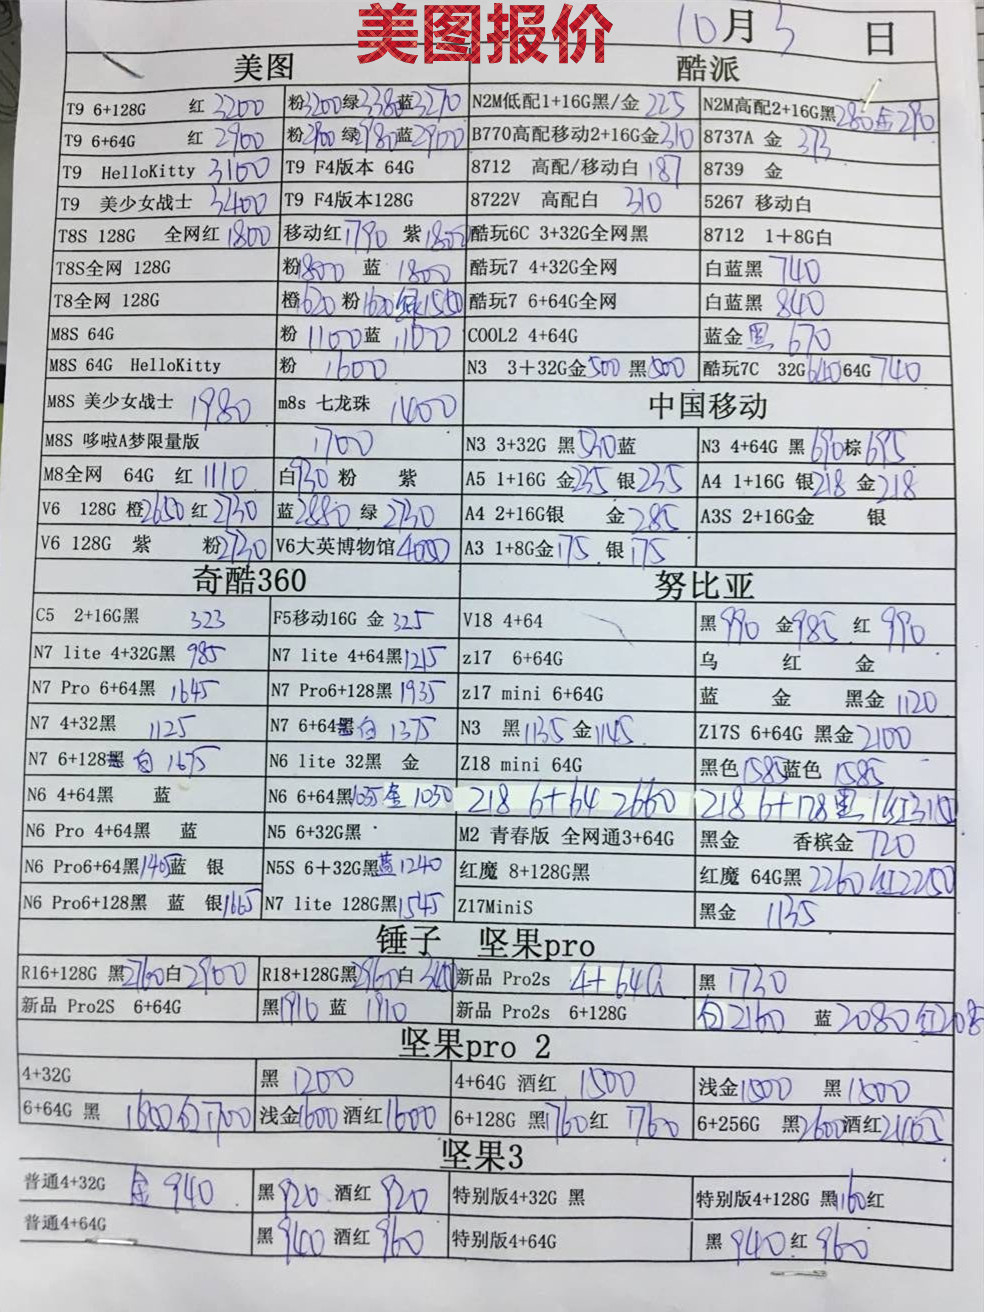 美图报价
10月3日
美图 酷派
T9 6+128G 红 3200 粉3200绿3380蓝3270 N2M低配1+16G黑/金 225 N2M高配2+16G黑280金290
T9 6+64G 红 2900 粉2900 绿2980蓝2900 B770高配移动2+16G金310 8737A 金 373
T9 HelloKitty 3100 T9 F4版本 64G 8712 高配/移动白 187 8739 金
T9 美少女战士 3400 T9 F4版本128G 8722V 高配白 310 5267 移动白
T8S 128G 全网红1800 移动红1790 紫1800 酷玩6C 3+32G全网黑 8712 1+8G白
T8S全网 128G 粉1800 蓝 1800 酷玩7 4+32G全网 白蓝黑 740
T8全网 128G 橙1620 粉1620绿1550 酷玩7 6+64G全网 白蓝黑 840
M8S 64G 粉 1100蓝 1100 COOL2 4+64G 蓝金黑 670
M8S 64G HelloKitty 粉 1600 N3 3+32G金500 黑500 酷玩7C 32G640 64G 740
M8S 美少女战士 1980 m8s 七龙珠 1400 中国移动
M8S 哆啦A梦限量版 1700 N3 3+32G 黑530蓝 N3 4+64G 黑690棕695
M8全网 64G 红 1110 白930 粉 紫 A5 1+16G 金235 银235 A4 1+16G 银218 金218
V6 128G 橙2650 红2730 蓝2880 绿 2730 A4 2+16G银 金285 A3S 2+16G金 银
V6 128G 紫 粉2730 V6大英博物馆4000 A3 1+8G金175 银175
奇酷360 努比亚
C5 2+16G黑 323 F5移动16G 金 325 V18 4+64 黑990 金985 红 990
N7 lite 4+32G黑 985 N7 lite 4+64黑1215 z17 6+64G 乌 红 金
N7 Pro 6+64黑 1645 N7 Pro6+128黑 1935 z17 mini 6+64G 蓝 金 黑金 1120
N7 4+32黑 1125 N7 6+64黑白 1375 N3 黑1135 金1145 Z17S 6+64G 黑金2100
N7 6+128黑 白 1675 N6 lite 32黑 金 Z18 mini 64G 黑色1585蓝色 1585
N6 4+64黑 蓝 N6 6+64黑1035 金1050 Z18 6+64 2660 Z18 6+128黑
N6 Pro 4+64黑 蓝 N5 6+32G黑 M2 青春版 全网通3+64G 黑金 香槟金 720
N6 Pro6+64黑1405蓝 银 N5S 6+32G黑蓝1240 红魔 8+128G黑 红魔 64G黑 2260红2250
N6 Pro6+128黑 蓝 银1665 N7 lite 128G黑1545 Z17MiniS 黑金 1135
锤子 坚果pro
R16+128G 黑2760白2900 R18+128G黑2960白 新品 Pro2s 4+64G 黑 1730
新品 Pro2S 6+64G 黑1910 蓝 1910 新品 Pro2s 6+128G 白2160 蓝2080红2085
坚果pro 2
4+32G 黑 1200 4+64G 酒红 1500 浅金1500 黑1500
6+64G 黑 1600白1700 浅金1600 酒红1600 6+128G 黑1760红 1760 6+256G 黑2600酒红
坚果3
普通4+32G 金 940 黑920 酒红 920 特别版4+32G 黑 特别版4+128G 黑1160红
普通4+64G 黑940 酒红960 特别版4+64G 黑 940 红 960